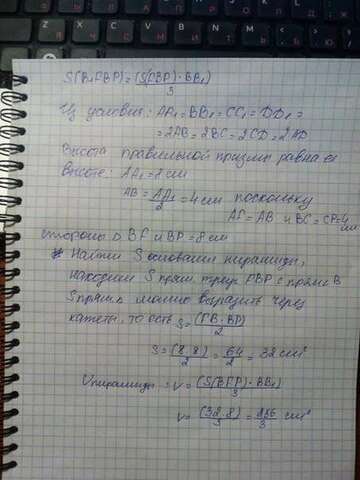 S(B₁FBP)=(S(FBP)·BB₁)/3
Из условия: AA₁=BB₁=CC₁=DD₁=
=2AB=2BC=2CD=2AD
Высота правильной призмы равна её
высоте: AA₁=8 см
AB=AA₁/2=4 см поскольку
AF=AB и BC=CP=4
стороны Δ BF и BP=8 см
Найти S основания пирамиды,
находим S прям. треуг. PBP с прямым B
S прям.к можно выразить через
катеты, то есть S=(FB·BP)/2
S=(8·8)/2=64/2=32 cm²
Vпирамиды: V=(S(BFP)·BB₁)/3
V=(32·8)/3=256/3 cm³